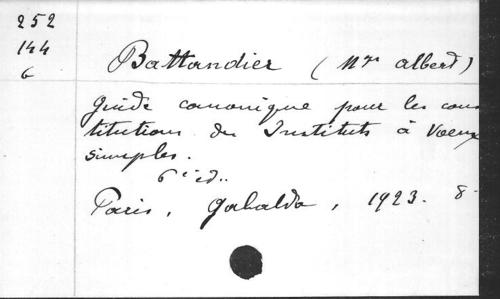 252
144
6
Battandier (Mgr Albert)
Guide canonique pour les cons
titutions des Instituts à Voeux
simples.
6e éd..
Paris, Gabalda, 1923. 8-